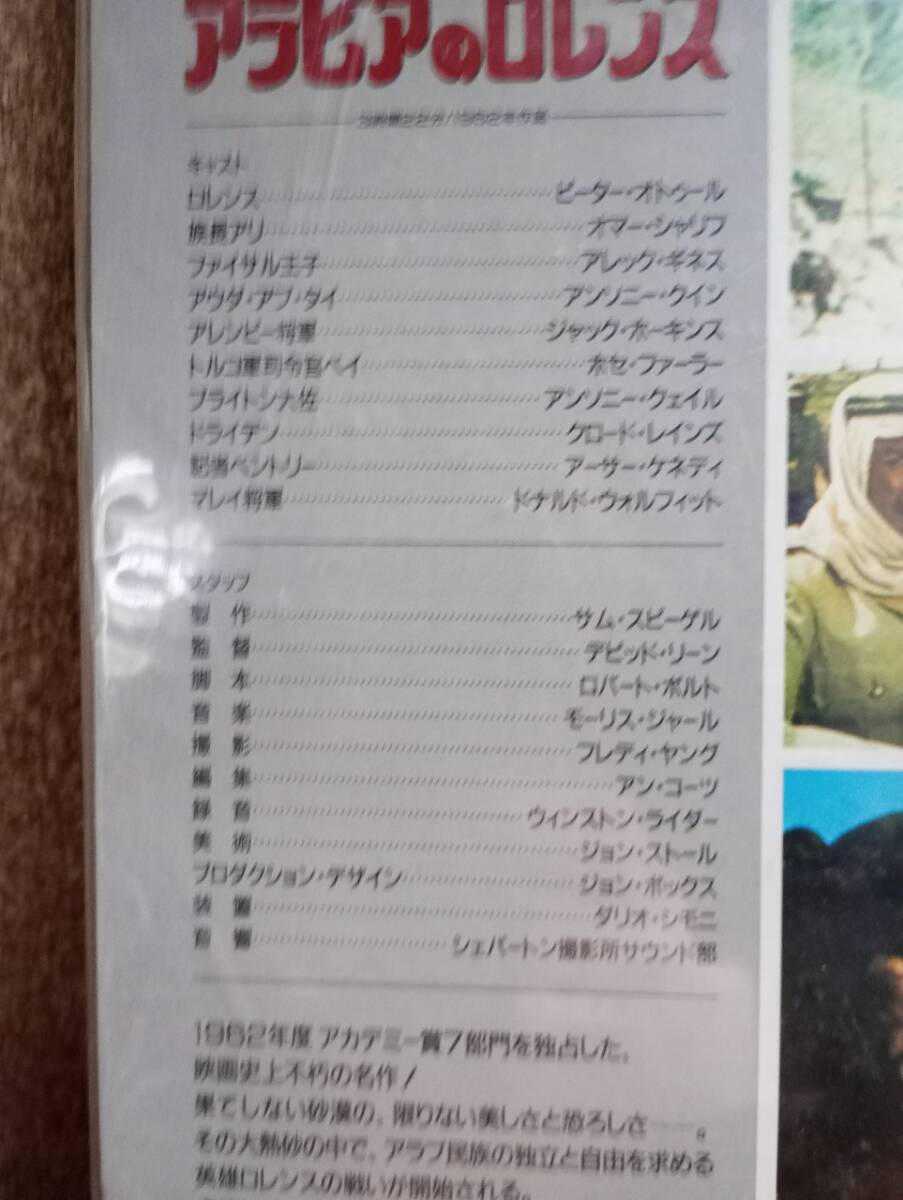 アラビアのロレンス
3時間22分/1962年作品
キャスト
ロレンス…………ピーター・オトゥール
族長アリ…………オマー・シャリフ
ファイサル王子…………アレック・ギネス
アウダ・アブ・タイ…………アンソニー・クイン
アレンビー将軍…………ジャック・ホーキンス
トルコ軍司令官ベイ…………ホセ・ファーラー
ブライトン大佐…………アンソニー・クェイル
ドライデン…………クロード・レインズ
記者ベントリー…………アーサー・ケネディ
マレイ将軍…………ドナルド・ウォルフィット
スタッフ
製 作…………サム・スピーゲル
監 督…………デビッド・リーン
脚 本…………ロバート・ボルト
音 楽…………モーリス・ジャール
撮 影…………フレディ・ヤング
編 集…………アン・コーツ
録 音…………ウィンストン・ライダー
美 術…………ジョン・ストール
プロダクション・デザイン…………ジョン・ボックス
装 置…………ダリオ・シモニ
音 響…………シェパートン撮影所サウンド部
1962年度 アカデミー賞7部門を独占した、
映画史上不朽の名作！
果てしない砂漠の、限りない美しさと恐ろしさ――。
その大熱砂の中で、アラブ民族の独立と自由を求める
英雄ロレンスの戦いが開始される。